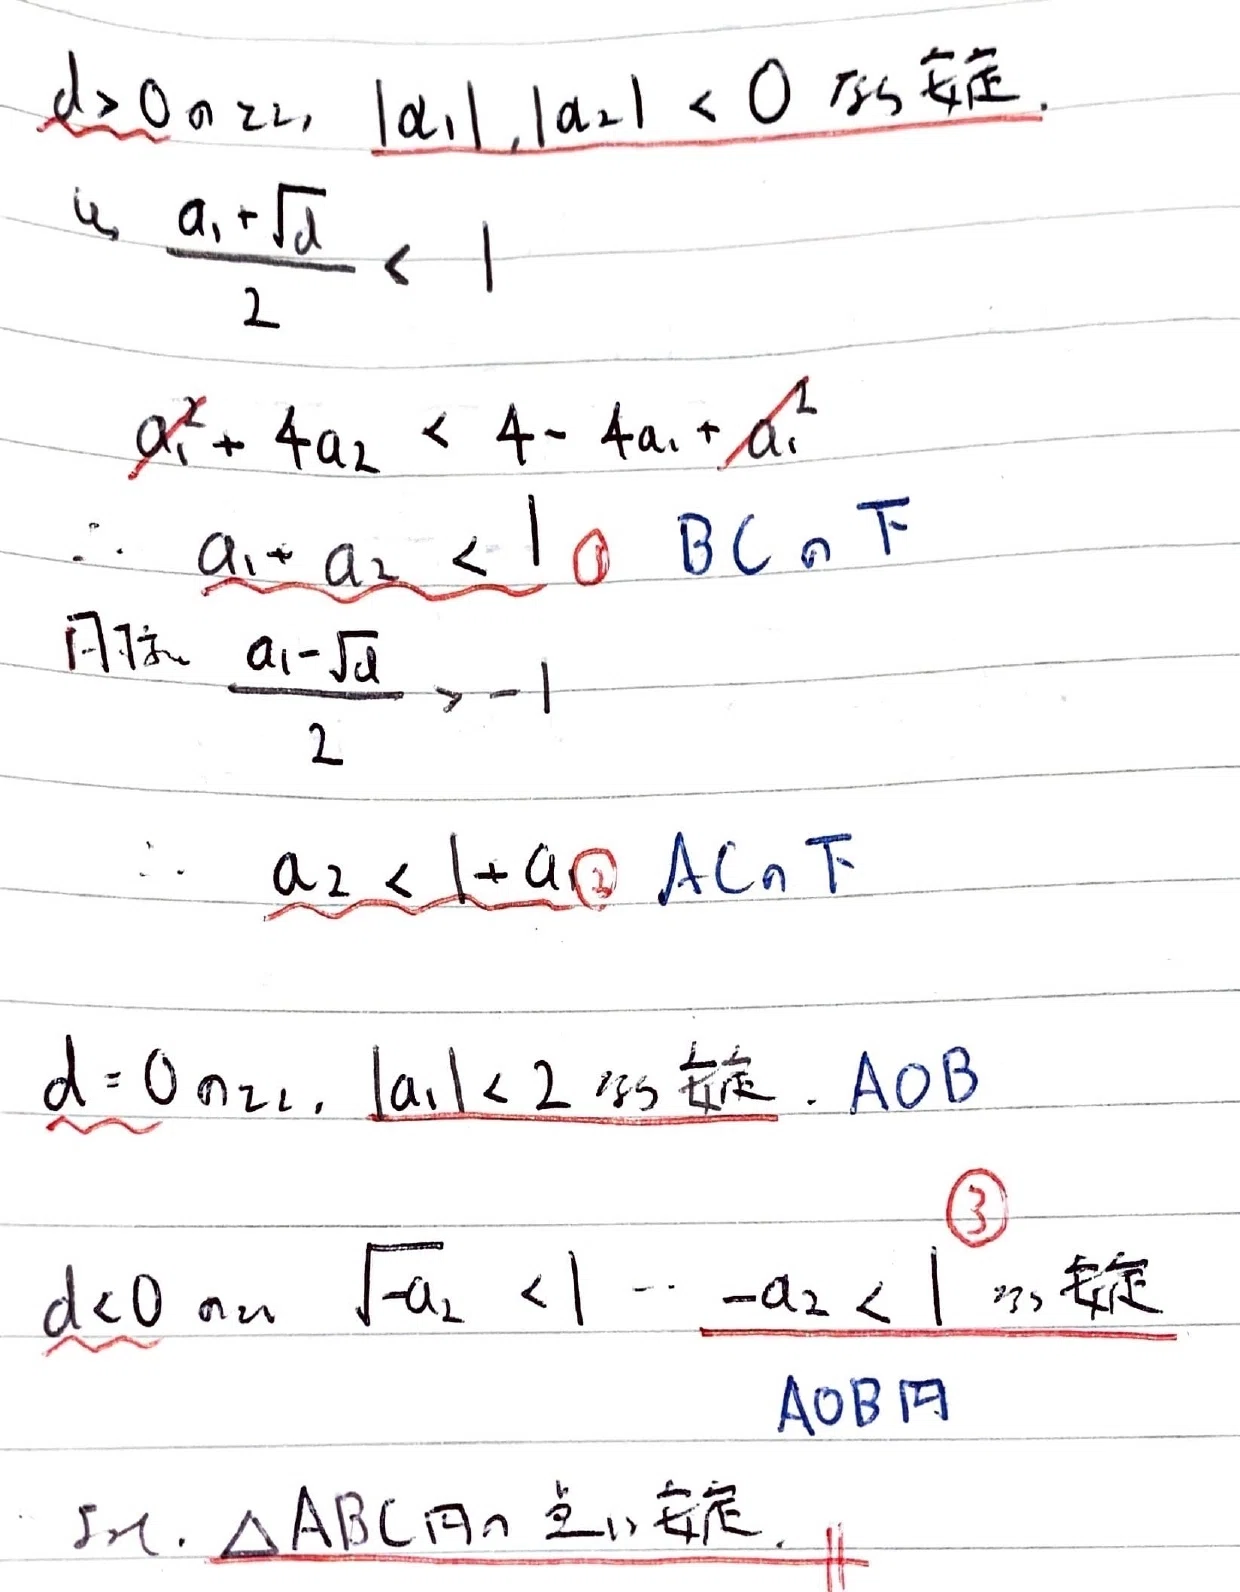 d>0のとき, |α₁|, |α₂| < 0 なら安定.
(a₁+√d)/2 < 1
a₁² + 4a₂ < 4 - 4a₁ + a₁²
∴ a₁+a₂ < 1 ① BCの下
同様に (a₁-√d)/2 > -1
∴ a₂ < 1+a₁ ② ACの下
d=0のとき, |a₁|<2 なら安定. AOB
③
d<0のとき √-a₂ <1 … -a₂ < 1 なら安定
AOB内
よって. △ABC内の点は安定.